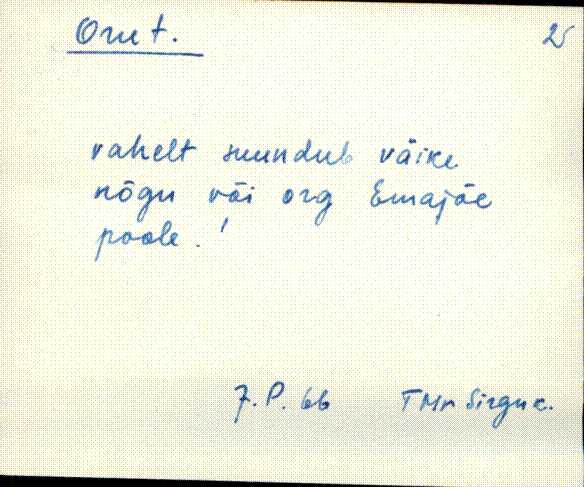 Oru t. 25
vahelt suundub väike
nõgu või org Emajõe
poole.'
J.P. 66 TMr Sirgu k.